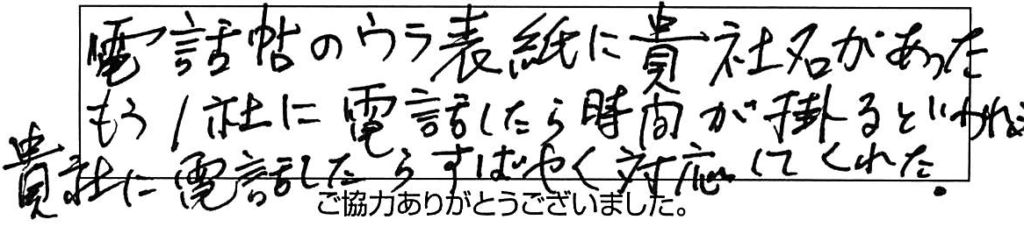 電話帖のウラ表紙に貴社名があった
もう1社に電話したら時間が掛るといわれ
貴社に電話したらすばやく対応してくれた。
ご協力ありがとうございました。